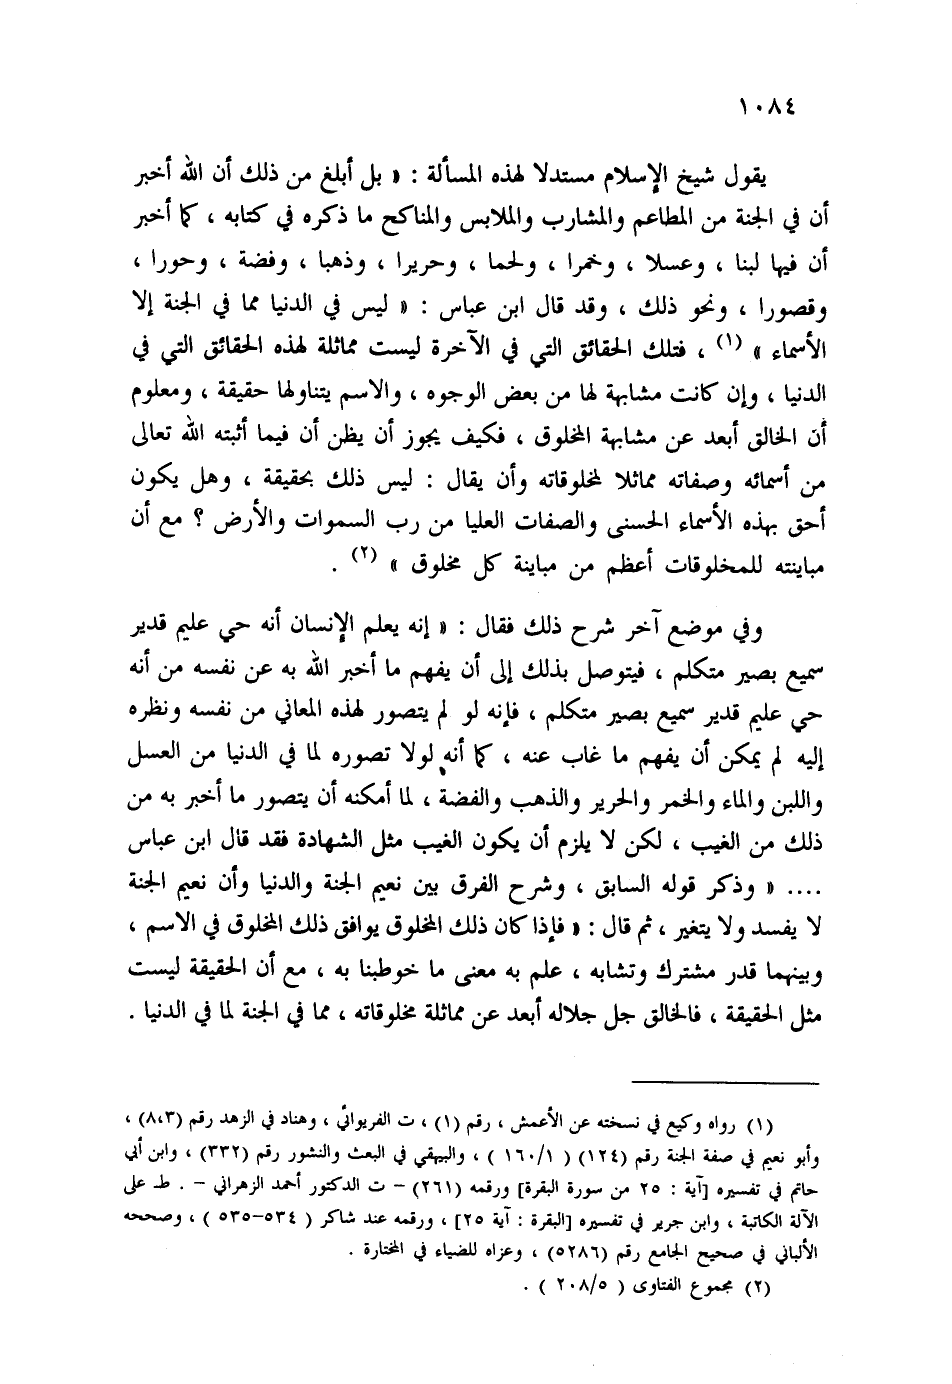 ١٠٨٤
يقول شيخ الإسلام مستدلا لهذه المسألة : « بل أبلغ من ذلك أن الله أخبر
أن في الجنة من المطاعم والمشارب والملابس والمناكح ما ذكره في كتابه ، كما أخبر
أن فيها لبنا ، وعسلا ، وخمرا ، ولحما ، وحريرا ، وذهبا ، وفضة ، وحورا ،
وقصورا ، ونحو ذلك ، وقد قال ابن عباس : « ليس في الدنيا مما في الجنة إلا
الأسماء » (١) ، فتلك الحقائق التي في الآخرة ليست مماثلة لهذه الحقائق التي في
الدنيا ، وإن كانت مشابهة لها من بعض الوجوه ، والاسم يتناولها حقيقة ، ومعلوم
أن الخالق أبعد عن مشابهة المخلوق ، فكيف يجوز أن يظن أن فيما أثبته الله تعالى
من أسمائه وصفاته مماثلا لمخلوقاته وأن يقال : ليس ذلك بحقيقة ، وهل يكون
أحق بهذه الأسماء الحسنى والصفات العليا من رب السموات والأرض ؟ مع أن
مباينته للمخلوقات أعظم من مباينة كل مخلوق » (٢) .
وفي موضع آخر شرح ذلك فقال : « إنه يعلم الإنسان أنه حي عليم قدير
سميع بصير متكلم ، فيتوصل بذلك إلى أن يفهم ما أخبر الله به عن نفسه من أنه
حي عليم قدير سميع بصير متكلم ، فإنه لو لم يتصور لهذه المعاني من نفسه ونظره
إليه لم يمكن أن يفهم ما غاب عنه ، كما أنه لولا تصوره لما في الدنيا من العسل
واللبن والماء والخمر والحرير والذهب والفضة ، لما أمكنه أن يتصور ما أخبر به من
ذلك من الغيب ، لكن لا يلزم أن يكون الغيب مثل الشهادة فقد قال ابن عباس
.... « وذكر قوله السابق ، وشرح الفرق بين نعيم الجنة والدنيا وأن نعيم الجنة
لا يفسد ولا يتغير ، ثم قال : « فإذا كان ذلك المخلوق يوافق ذلك المخلوق في الاسم ،
وبينهما قدر مشترك وتشابه ، علم به معنى ما خوطبنا به ، مع أن الحقيقة ليست
مثل الحقيقة ، فالخالق جل جلاله أبعد عن مماثلة مخلوقاته ، مما في الجنة لما في الدنيا .
(١) رواه وكيع في نسخته عن الأعمش ، رقم (١) ، ت الفريوائي ، وهناد في الزهد رقم (٨،٣) ،
وأبو نعيم في صفة الجنة رقم (١٢٤) ( ١٦٠/١ ) ، والبيهقي في البعث والنشور رقم (٣٣٢) ، وابن أبي
حاتم في تفسيره [آية : ٢٥ من سورة البقرة] ورقمه (٢٦١) – ت الدكتور أحمد الزهراني – . طـ على
الآلة الكاتبة ، وابن جرير في تفسيره [البقرة : آية ٢٥] ، ورقمه عند شاكر ( ٥٣٤–٥٣٥ ) ، وصححه
الألباني في صحيح الجامع رقم (٥٢٨٦) ، وعزاه للضياء في المختارة .
(٢) مجموع الفتاوى ( ٢٠٨/٥ ) .